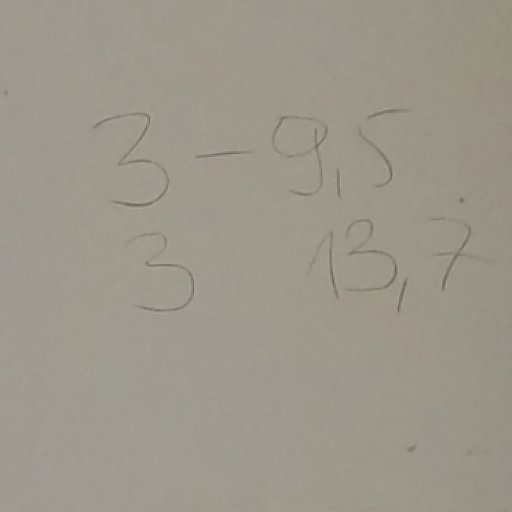 3 - 9,5
3 13,7